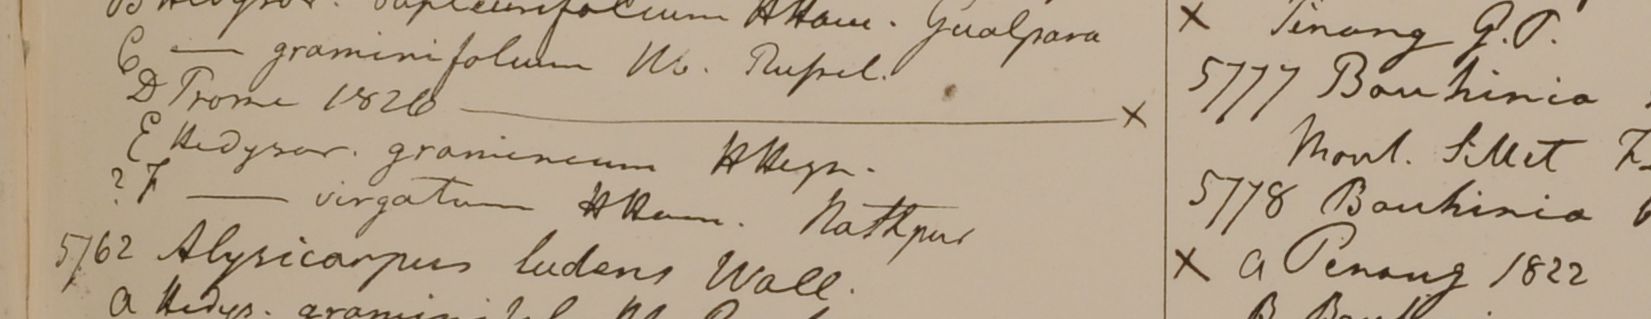 B Hedysar. bupleurifolium HHam. Gualpara
C — graminifolium Hb. Russel.
D Prome 1826 — X
E Hedysar. gramineum HHeyn.
? F — virgatum HHam. Nathpur
5762 Alysicarpus ludens Wall.
a Hedys.
X Pinang G.P.
5777 Bauhinia
Mont. Sillet
5778 Bauhinia
X a Penang 1822
B